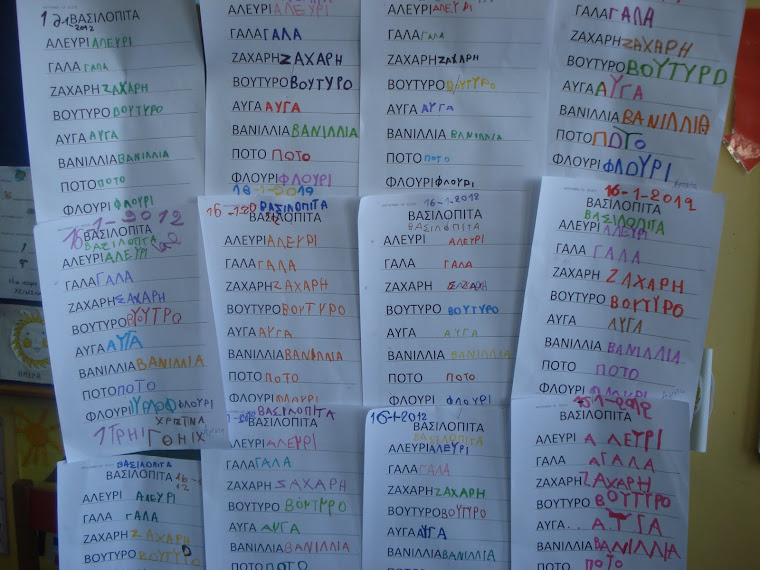 ΒΑΣΙΛΟΠΙΤΑ
2012
ΑΛΕΥΡΙ ΑΛΕΥΡΙ
ΓΑΛΑ ΓΑΛΑ
ΖΑΧΑΡΗ ΖΑΧΑΡΗ
ΒΟΥΤΥΡΟ ΒΟΥΤΥΡΟ
ΑΥΓΑ ΑΥΓΑ
ΒΑΝΙΛΛΙΑ ΒΑΝΙΛΛΙΑ
ΠΟΤΟ ΠΟΤΟ
ΦΛΟΥΡΙ ΦΛΟΥΡΙ
ΑΛΕΥΡΙ ΑΛΕΥΡΙ
ΓΑΛΑ ΓΑΛΑ
ΖΑΧΑΡΗ ΖΑΧΑΡΗ
ΒΟΥΤΥΡΟ ΒΟΥΤΥΡΟ
ΑΥΓΑ ΑΥΓΑ
ΒΑΝΙΛΛΙΑ ΒΑΝΙΛΛΙΑ
ΠΟΤΟ ΠΟΤΟ
ΦΛΟΥΡΙ ΦΛΟΥΡΙ
ΑΛΕΥΡΙ ΑΛΕΥΡΙ
ΓΑΛΑ ΓΑΛΑ
ΖΑΧΑΡΗ ΖΑΧΑΡΗ
ΒΟΥΤΥΡΟ ΒΟΥΤΥΡΟ
ΑΥΓΑ ΑΥΓΑ
ΒΑΝΙΛΛΙΑ ΒΑΝΙΛΛΙΑ
ΠΟΤΟ ΠΟΤΟ
ΦΛΟΥΡΙ ΦΛΟΥΡΙ
ΓΑΛΑ ΓΑΛΑ
ΖΑΧΑΡΗ ΖΑΧΑΡΗ
ΒΟΥΤΥΡΟ ΒΟΥΤΥΡΟ
ΑΥΓΑ ΑΥΓΑ
ΒΑΝΙΛΛΙΑ ΒΑΝΙΛΛΙΑ
ΠΟΤΟ ΠΟΤΟ
ΦΛΟΥΡΙ ΦΛΟΥΡΙ
16-1-2012
ΒΑΣΙΛΟΠΙΤΑ
ΒΑΣΙΛΟΠΙΤΑ
ΑΛΕΥΡΙ ΑΛΕΥΡΙ
ΓΑΛΑ ΓΑΛΑ
ΖΑΧΑΡΗ ΖΑΧΑΡΗ
ΒΟΥΤΥΡΟ ΒΟΥΤΡΟ
ΑΥΓΑ ΑΥΓΑ
ΒΑΝΙΛΛΙΑ ΒΑΝΙΛΛΙΑ
ΠΟΤΟ ΠΟΤΟ
ΦΛΟΥΡΙ ΦΛΟΥΡΙ
ΧΡΙΣΤΙΝΑ
ΒΑΣΙΛΟΠΙΤΑ
ΒΑΣΙΛΟΠΙΤΑ
ΑΛΕΥΡΙ ΑΛΕΥΡΙ
ΓΑΛΑ ΓΑΛΑ
ΖΑΧΑΡΗ ΖΑΧΑΡΗ
ΒΟΥΤΥΡΟ ΒΟΥΤΥΡΟ
ΑΥΓΑ ΑΥΓΑ
ΒΑΝΙΛΛΙΑ ΒΑΝΙΛΛΙΑ
ΠΟΤΟ ΠΟΤΟ
ΦΛΟΥΡΙ ΦΛΟΥΡΙ
16-1-2012
ΒΑΣΙΛΟΠΙΤΑ
ΒΑΣΙΛΟΠΙΤΑ
ΑΛΕΥΡΙ ΑΛΕΥΡΙ
ΓΑΛΑ ΓΑΛΑ
ΖΑΧΑΡΗ ΖΑΧΑΡΗ
ΒΟΥΤΥΡΟ ΒΟΥΤΥΡΟ
ΑΥΓΑ ΑΥΓΑ
ΒΑΝΙΛΛΙΑ ΒΑΝΙΛΛΙΑ
ΠΟΤΟ ΠΟΤΟ
ΦΛΟΥΡΙ ΦΛΟΥΡΙ
16-1-2012
ΒΑΣΙΛΟΠΙΤΑ
ΒΑΣΙΛΟΠΙΤΑ
ΑΛΕΥΡΙ ΑΛΕΥΡΙ
ΓΑΛΑ ΓΑΛΑ
ΖΑΧΑΡΗ ΖΑΧΑΡΗ
ΒΟΥΤΥΡΟ ΒΟΥΤΥΡΟ
ΑΥΓΑ ΑΥΓΑ
ΒΑΝΙΛΛΙΑ ΒΑΝΙΛΛΙΑ
ΠΟΤΟ ΠΟΤΟ
ΦΛΟΥΡΙ ΦΛΟΥΡΙ
ΒΑΣΙΛΟΠΙΤΑ
ΒΑΣΙΛΟΠΙΤΑ
ΑΛΕΥΡΙ ΑΛΕΥΡΙ
ΓΑΛΑ ΓΑΛΑ
ΖΑΧΑΡΗ ΖΑΧΑΡΗ
ΒΟΥΤΥΡΟ ΒΟΥΤΥΡΟ
ΒΑΣΙΛΟΠΙΤΑ
ΒΑΣΙΛΟΠΙΤΑ
ΑΛΕΥΡΙ ΑΛΕΥΡΙ
ΓΑΛΑ ΓΑΛΑ
ΖΑΧΑΡΗ ΖΑΧΑΡΗ
ΒΟΥΤΥΡΟ ΒΟΥΤΥΡΟ
ΑΥΓΑ ΑΥΓΑ
ΒΑΝΙΛΛΙΑ ΒΑΝΙΛΛΙΑ
ΠΟΤΟ ΠΟΤΟ
16-1-2012
ΒΑΣΙΛΟΠΙΤΑ
ΒΑΣΙΛΟΠΙΤΑ
ΑΛΕΥΡΙ ΑΛΕΥΡΙ
ΓΑΛΑ ΓΑΛΑ
ΖΑΧΑΡΗ ΖΑΧΑΡΗ
ΒΟΥΤΥΡΟ ΒΟΥΤΥΡΟ
ΑΥΓΑ ΑΥΓΑ
ΒΑΝΙΛΛΙΑ ΒΑΝΙΛΛΙΑ
ΠΟΤΟ
ΒΑΣΙΛΟΠΙΤΑ
ΑΛΕΥΡΙ ΑΛΕΥΡΙ
ΓΑΛΑ ΑΓΑΛΑ
ΖΑΧΑΡΗ ΖΑΧΑΡΗ
ΒΟΥΤΥΡΟ ΒΟΥΤΥΡΟ
ΑΥΓΑ.. ΑΥΓΑ
ΒΑΝΙΛΛΙΑ ΒΑΝΙΛΛΙΑ
ΠΟΤΟ ΠΟΤΟ